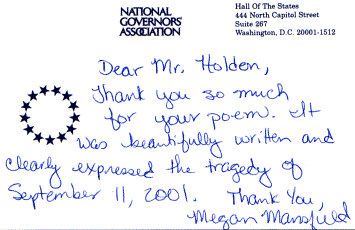 NATIONAL
GOVERNORS'
ASSOCIATION
Hall Of The States
444 North Capitol Street
Suite 267
Washington, D.C. 20001-1512
Dear Mr. Holden,
Thank you so much
for your poem. It
was beautifully written and
clearly expressed the tragedy of
September 11, 2001. Thank You,
Megan Mansfield